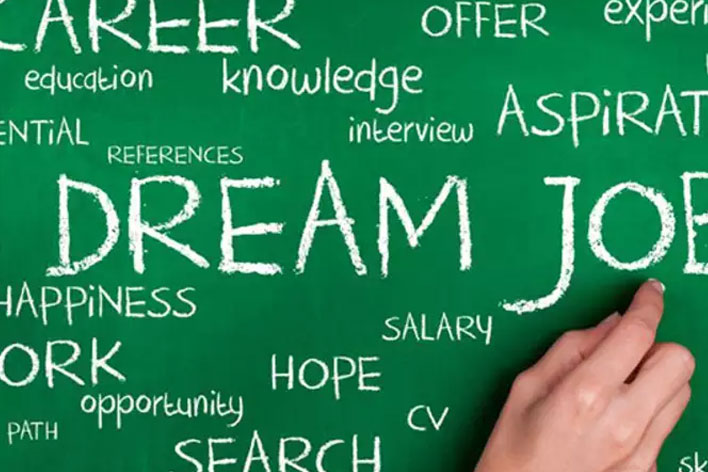 CAREER
OFFER
experi
education
knowledge
ASPiRAT
ENTiAL
interview
REFERENCES
DREAM JOB
HAPPiNESS
SALARY
ORK
HOPE
opportunity
CV
PATH
SEARCH
sk